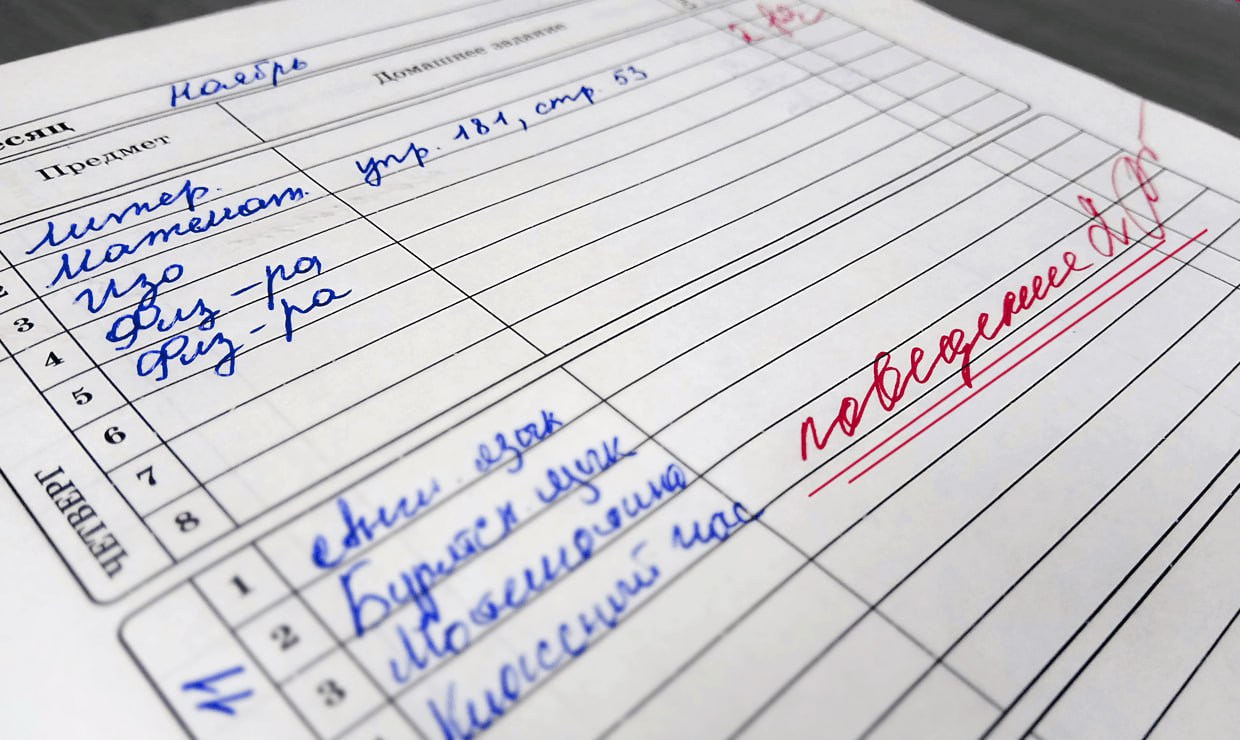 есяц Ноябрь
Предмет Домашнее задание
литер.
2 математ. упр. 181, стр. 53
3 изо
4 Физ-ра
5 Физ-ра
6
7
8
ЧЕТВЕРГ
1 Англ. язык
2 Бурятск. язык
3 Математика
Классный час
11
поведение